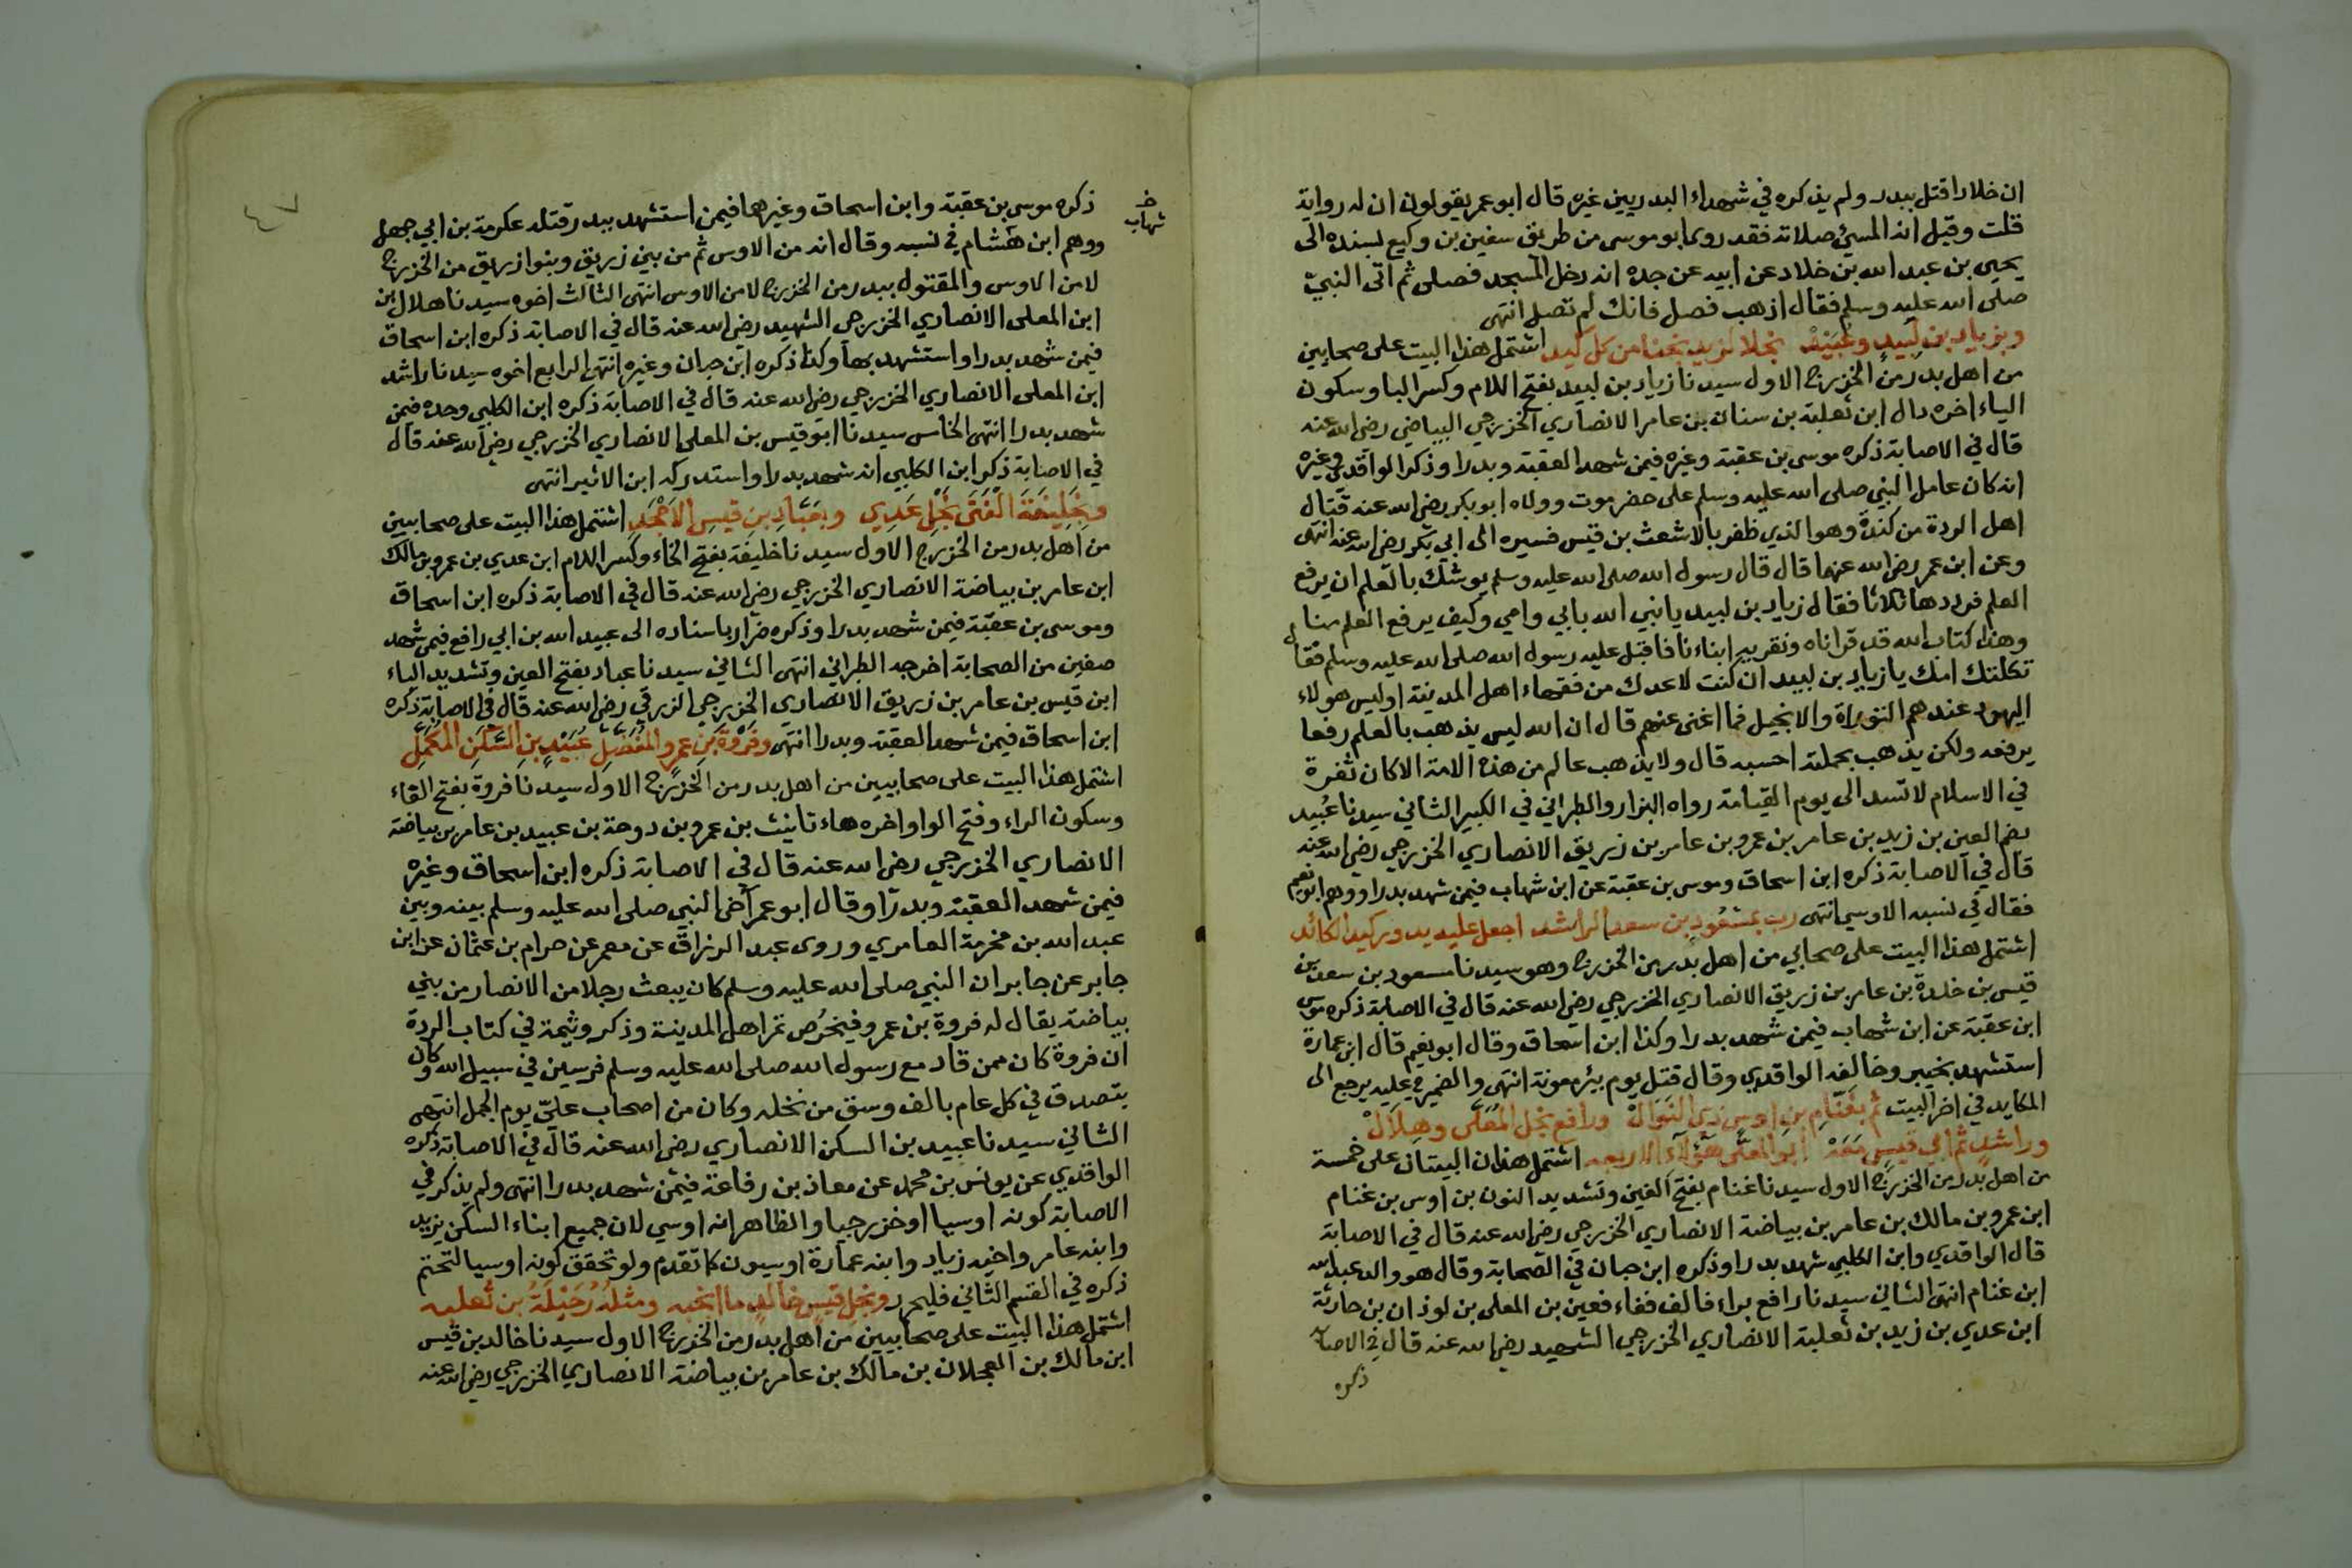 ان خلادا قتل ببدر ولم يذكره في شهداء البدريين غيره قال ابو عمر يقولون ان له رواية
قلت وقيل انه المسئ صلاته فقد روى ابو موسى من طريق سفين بن وكيع بسنده الى
يحيى بن عبد الله بن خلاد عن ابيه عن جده انه دخل المسجد فصلى ثم اتى النبي
صلى الله عليه وسلم فقال اذهب فصل فانك لم تصل انتهى
وبزياد بن لبيد وعبيد نجلا لزيد نجنا من كل كيد اشتمل هذا البيت على صحابيين
من اهل بدر من الخزرج الاول سيدنا زياد بن لبيد بفتح اللام وكسر البا وسكون
الياء اخره دال ابن ثعلبة بن سنان بن عامر الانصاري الخزرجي البياضي رضي الله عنه
قال في الاصابة ذكره موسى بن عقبة وغيره فيمن شهد العقبة وبدرا وذكر الواقدي وغيره
انه كان عامل النبي صلى الله عليه وسلم على حضرموت وولاه ابو بكر رضي الله عنه قتال
اهل الردة من كندة وهو الذي ظفر بالاشعث بن قيس فسيره الى ابي بكر رضي الله عنه انتهى
وعن ابن عمر رضي الله عنهما قال قال رسول الله صلى الله عليه وسلم يوشك بالعلم ان يرفع
العلم فرددها ثلاثا فقال زياد بن لبيد يا نبي الله بابي وامي وكيف يرفع العلم منا
وهذا كتاب الله قد قراناه ونقريه ابناءنا فاقبل عليه رسول الله صلى الله عليه وسلم فقال
ثكلتك امك يا زياد بن لبيد ان كنت لاعدك من فقهاء اهل المدينة اوليس هولاء
اليهود عندهم التوراة والانجيل فما اغنى عنهم قال ان الله ليس يذهب بالعلم رفعا
يرفعه ولكن يذهب بحملته احسبه قال ولا يذهب عالم من هذه الامة الا كان ثغرة
في الاسلام لا تسد الى يوم القيامة رواه البزار والطبراني في الكبير الثاني سيدنا عُبيد
بضم العين بن زيد بن عامر بن عمرو بن عامر بن زريق الانصاري الخزرجي رضي الله عنه
قال في الاصابة ذكره ابن اسحاق وموسى بن عقبة عن ابن شهاب فيمن شهد بدرا ووهم ابو نعيم
فقال في نسبه الاوسي انتهى رب بمسعود بن سعد الراشد اجعل عليه يدور كيد الكائد
اشتمل هذا البيت على صحابي من اهل بدر من الخزرج وهو سيدنا مسعود بن سعد بن
قيس بن خلدة بن عامر بن زريق الانصاري الخزرجي رضي الله عنه قال في الاصابة ذكره موسى
ابن عقبة عن ابن شهاب فيمن شهد بدرا وكذا ابن اسحاق وقال ابو نعيم قال ابن عمارة
استشهد بخيبر وخالفه الواقدي وقال قتل يوم بئر معونة انتهى والضمير في عليه يرجع الى
المكايد في اخر البيت ثم بغنام بن اوس ذي النوال ورافع نجل المعلى وهلال
وراشد ثم ابي قيس معه ابو المعلى هؤلاء الاربعه اشتمل هذان البيتان على خمسة
من اهل بدر من الخزرج الاول سيدنا غنام بفتح الغين وتشديد النون بن اوس بن غنام
ابن عمرو بن مالك بن عامر بن بياضة الانصاري الخزرجي رضي الله عنه قال في الاصابة
قال الواقدي وابن الكلبي شهد بدرا وذكره ابن حبان في الصحابة وقال هو والد عبد الله
ابن غنام انتهى الثاني سيدنا رافع براء فالف ففاء فعين بن المعلى بن لوذان بن حارثة
ابن عدي بن زيد بن ثعلبة الانصاري الخزرجي الشهيد رضي الله عنه قال في الاصابة
ذكره
٤٧
خـ
شهاب
ذكره موسى بن عقبة وابن اسحاق وغيرهما فيمن استشهد ببدر قتله عكرمة بن ابي جهل
ووهم ابن هشام في نسبه وقال انه من الاوس ثم من بني زريق وبنوا زريق من الخزرج
لا من الاوس والمقتول ببدر من الخزرج لا من الاوس انتهى الثالث اخوه سيدنا هلال بن
ابن المعلى الانصاري الخزرجي الشهيد رضي الله عنه قال في الاصابة ذكره ابن اسحاق
فيمن شهد بدرا واستشهد بها وكذا ذكره ابن حبان وغيره انتهى الرابع اخوه سيدنا راشد
ابن المعلى الانصاري الخزرجي رضي الله عنه قال في الاصابة ذكره ابن الكلبي وحده فيمن
شهد بدرا انتهى الخامس سيدنا ابو قيس بن المعلى الانصاري الخزرجي رضي الله عنه قال
في الاصابة ذكر ابن الكلبي انه شهد بدرا واستدركه ابن الاثير انتهى
وبخليفة الفتى نجل عدي وبعباد بن قيس الامجد اشتمل هذا البيت على صحابيين
من اهل بدر من الخزرج الاول سيدنا خليفة بفتح الخاء وكسر اللام ابن عدي بن عمرو بن مالك
ابن عامر بن بياضة الانصاري الخزرجي رضي الله عنه قال في الاصابة ذكره ابن اسحاق
وموسى بن عقبة فيمن شهد بدرا وذكره ضرار باسناده الى عبيد الله بن ابي رافع فيمن شهد
صفين من الصحابة اخرجه الطبراني انتهى الثاني سيدنا عباد بفتح العين وتشديد الباء
ابن قيس بن عامر بن زريق الانصاري الخزرجي الزرقي رضي الله عنه قال في الاصابة ذكره
ابن اسحاق فيمن شهد العقبة وبدرا انتهى وفروة بن عمرو المفضل عبيد بن السكن المكمل
اشتمل هذا البيت على صحابيين من اهل بدر من الخزرج الاول سيدنا فروة بفتح الفاء
وسكون الراء وفتح الواو اخره هاء تانيث بن عمرو بن دوحة بن عبيد بن عامر بن بياضة
الانصاري الخزرجي رضي الله عنه قال في الاصابة ذكره ابن اسحاق وغيره
فيمن شهد العقبة وبدرا وقال ابو عمر آخى النبي صلى الله عليه وسلم بينه وبين
عبد الله بن مخرمة العامري وروى عبد الرزاق عن معمر عن حرام بن عثمان عن ابن
جابر عن جابر ان النبي صلى الله عليه وسلم كان يبعث رجلا من الانصار من بني
بياضة يقال له فروة بن عمرو فيخرُص تمر اهل المدينة وذكر وثيمة في كتاب الردة
ان فروة كان ممن قاد مع رسول الله صلى الله عليه وسلم فرسين في سبيل الله وكان
يتصدق في كل عام بالف وسق من نخله وكان من اصحاب عليّ يوم الجمل انتهى
الثاني سيدنا عبيد بن السكن الانصاري رضي الله عنه قال في الاصابة ذكره
الواقدي عن يونس بن محمد عن معاذ بن رفاعة فيمن شهد بدرا انتهى ولم يذكر في
الاصابة كونه اوسيا او خزرجيا والظاهر انه اوسي لان جميع ابناء السكن يزيد
وابنه عامر واخيه زياد وابنه عمارة اوسيون كما تقدم ولو تحقق كونه اوسيا لتحتم
ذكره في القسم الثاني فليحرر وبنجل قيس خالد ما انجبه ومثله رحيلة بن ثعلبه
اشتمل هذا البيت على صحابيين من اهل بدر من الخزرج الاول سيدنا خالد بن قيس
ابن مالك بن العجلان بن مالك بن عامر بن بياضة الانصاري الخزرجي رضي الله عنه